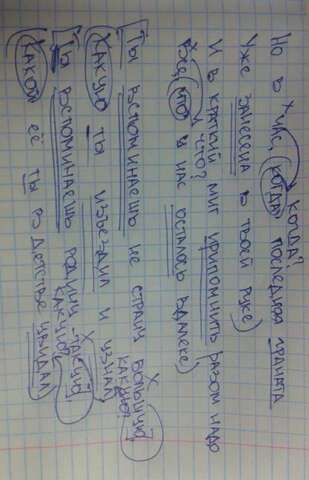 X когда?
Но в час, (когда) последняя граната
Уже занесена в твоей руке)
И в краткий миг припомнить разом надо
что?
Все, (что) у нас осталось вдалеке)
X
[Ты вспоминаешь не страну большую,
какую?
(Какую) ты изъездил и узнал)
X
[Ты вспоминаешь родину - такую,
какую?
(Какой) её ты в детстве увидал)